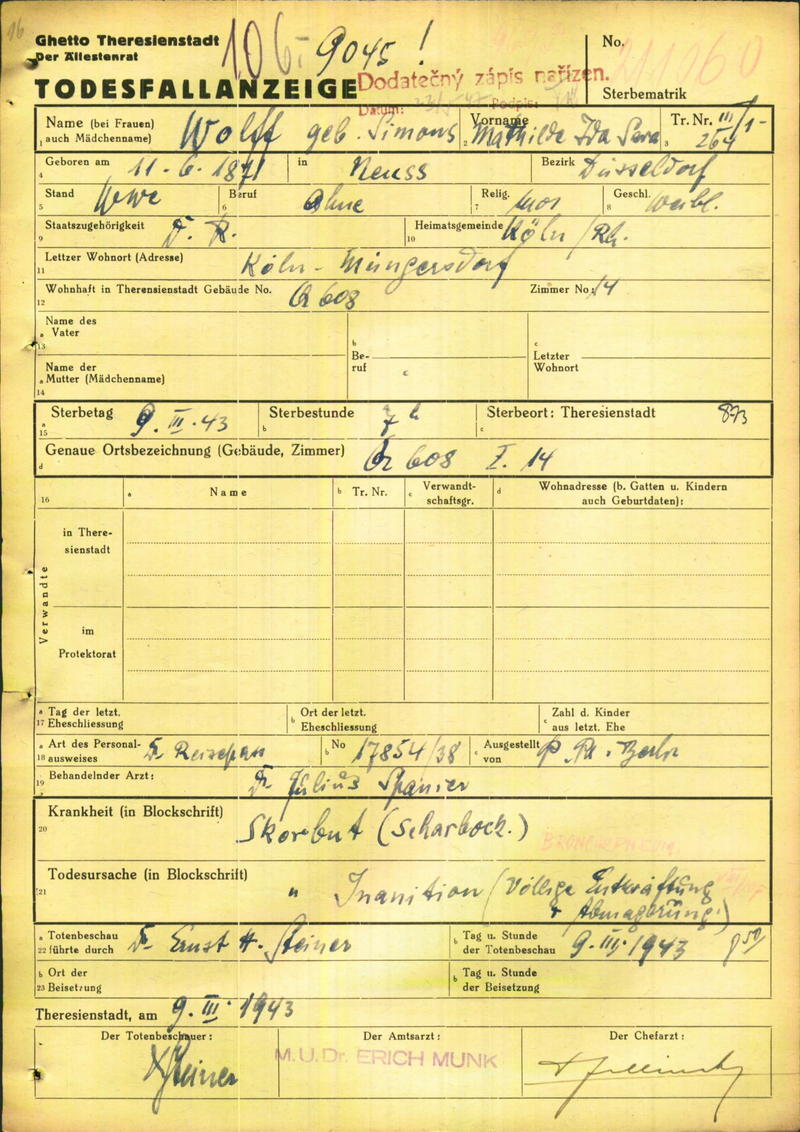 16
Ghetto Theresienstadt
Der Ältestenrat
106 9045!
No. 21160
TODESFALLANZEIGE
Dodatečný zápis nařízen.
Datum: Podpis:
Sterbematrik
Name (bei Frauen) auch Mädchenname) Wolff geb. Simons
Vorname Mathilde Ida Sara
Tr. Nr. III/1-264
1 2 3
Geboren am 11-6-1871 in Neuss Bezirk Düsseldorf
4
Stand Wwe Beruf Ohne Relig. mos Geschl. weibl.
5 6 7 8
Staatszugehörigkeit D. R. Heimatsgemeinde Köln/Rh.
9 10
Lettzer Wohnort (Adresse) Köln-Müngersdorf
11
Wohnhaft in Therensienstadt Gebäude No. Q 608 Zimmer No: 14
12
Name des
a Vater
13
b Be-ruf
c Letzter Wohnort
Name der
a Mutter (Mädchenname)
14
Sterbetag 9. III. 43 Sterbestunde 7 h Sterbeort: Theresienstadt 873
a 15 b c
Genaue Ortsbezeichnung (Gebäude, Zimmer) Q 608 Z. 14
d
16 a Name b Tr. Nr. c Verwandt-schaftsgr. d Wohnadresse (b. Gatten u. Kindern auch Geburtdaten):
Verwandte
in There-sienstadt
im Protektorat
a Tag der letzt. 17 Eheschliessung
b Ort der letzt. Eheschliessung
c Zahl d. Kinder aus letzt. Ehe
a Art des Personal- 18 ausweises D. Reisepass
b No 17854/38
c Ausgestellt von P. Pr. Berlin
Behandelnder Arzt: Dr Julius Spanier
19
Krankheit (in Blockschrift) Skorbut (Scharbock.)
20
Todesursache (in Blockschrift) " Inanition (Völlige Entkräftung
21
+ Abmagerung!)
a Totenbeschau 22 führte durch Dr Ernst H. Steiner
b Tag u. Stunde der Totenbeschau 9. III. 1943 8 50/
b Ort der 23 Beisetzung
b Tag u. Stunde der Beisetzung
Theresienstadt, am 9. III. 1943
Der Totenbeschauer: Der Amtsarzt: Der Chefarzt:
Steiner
M.U.Dr. ERICH MUNK